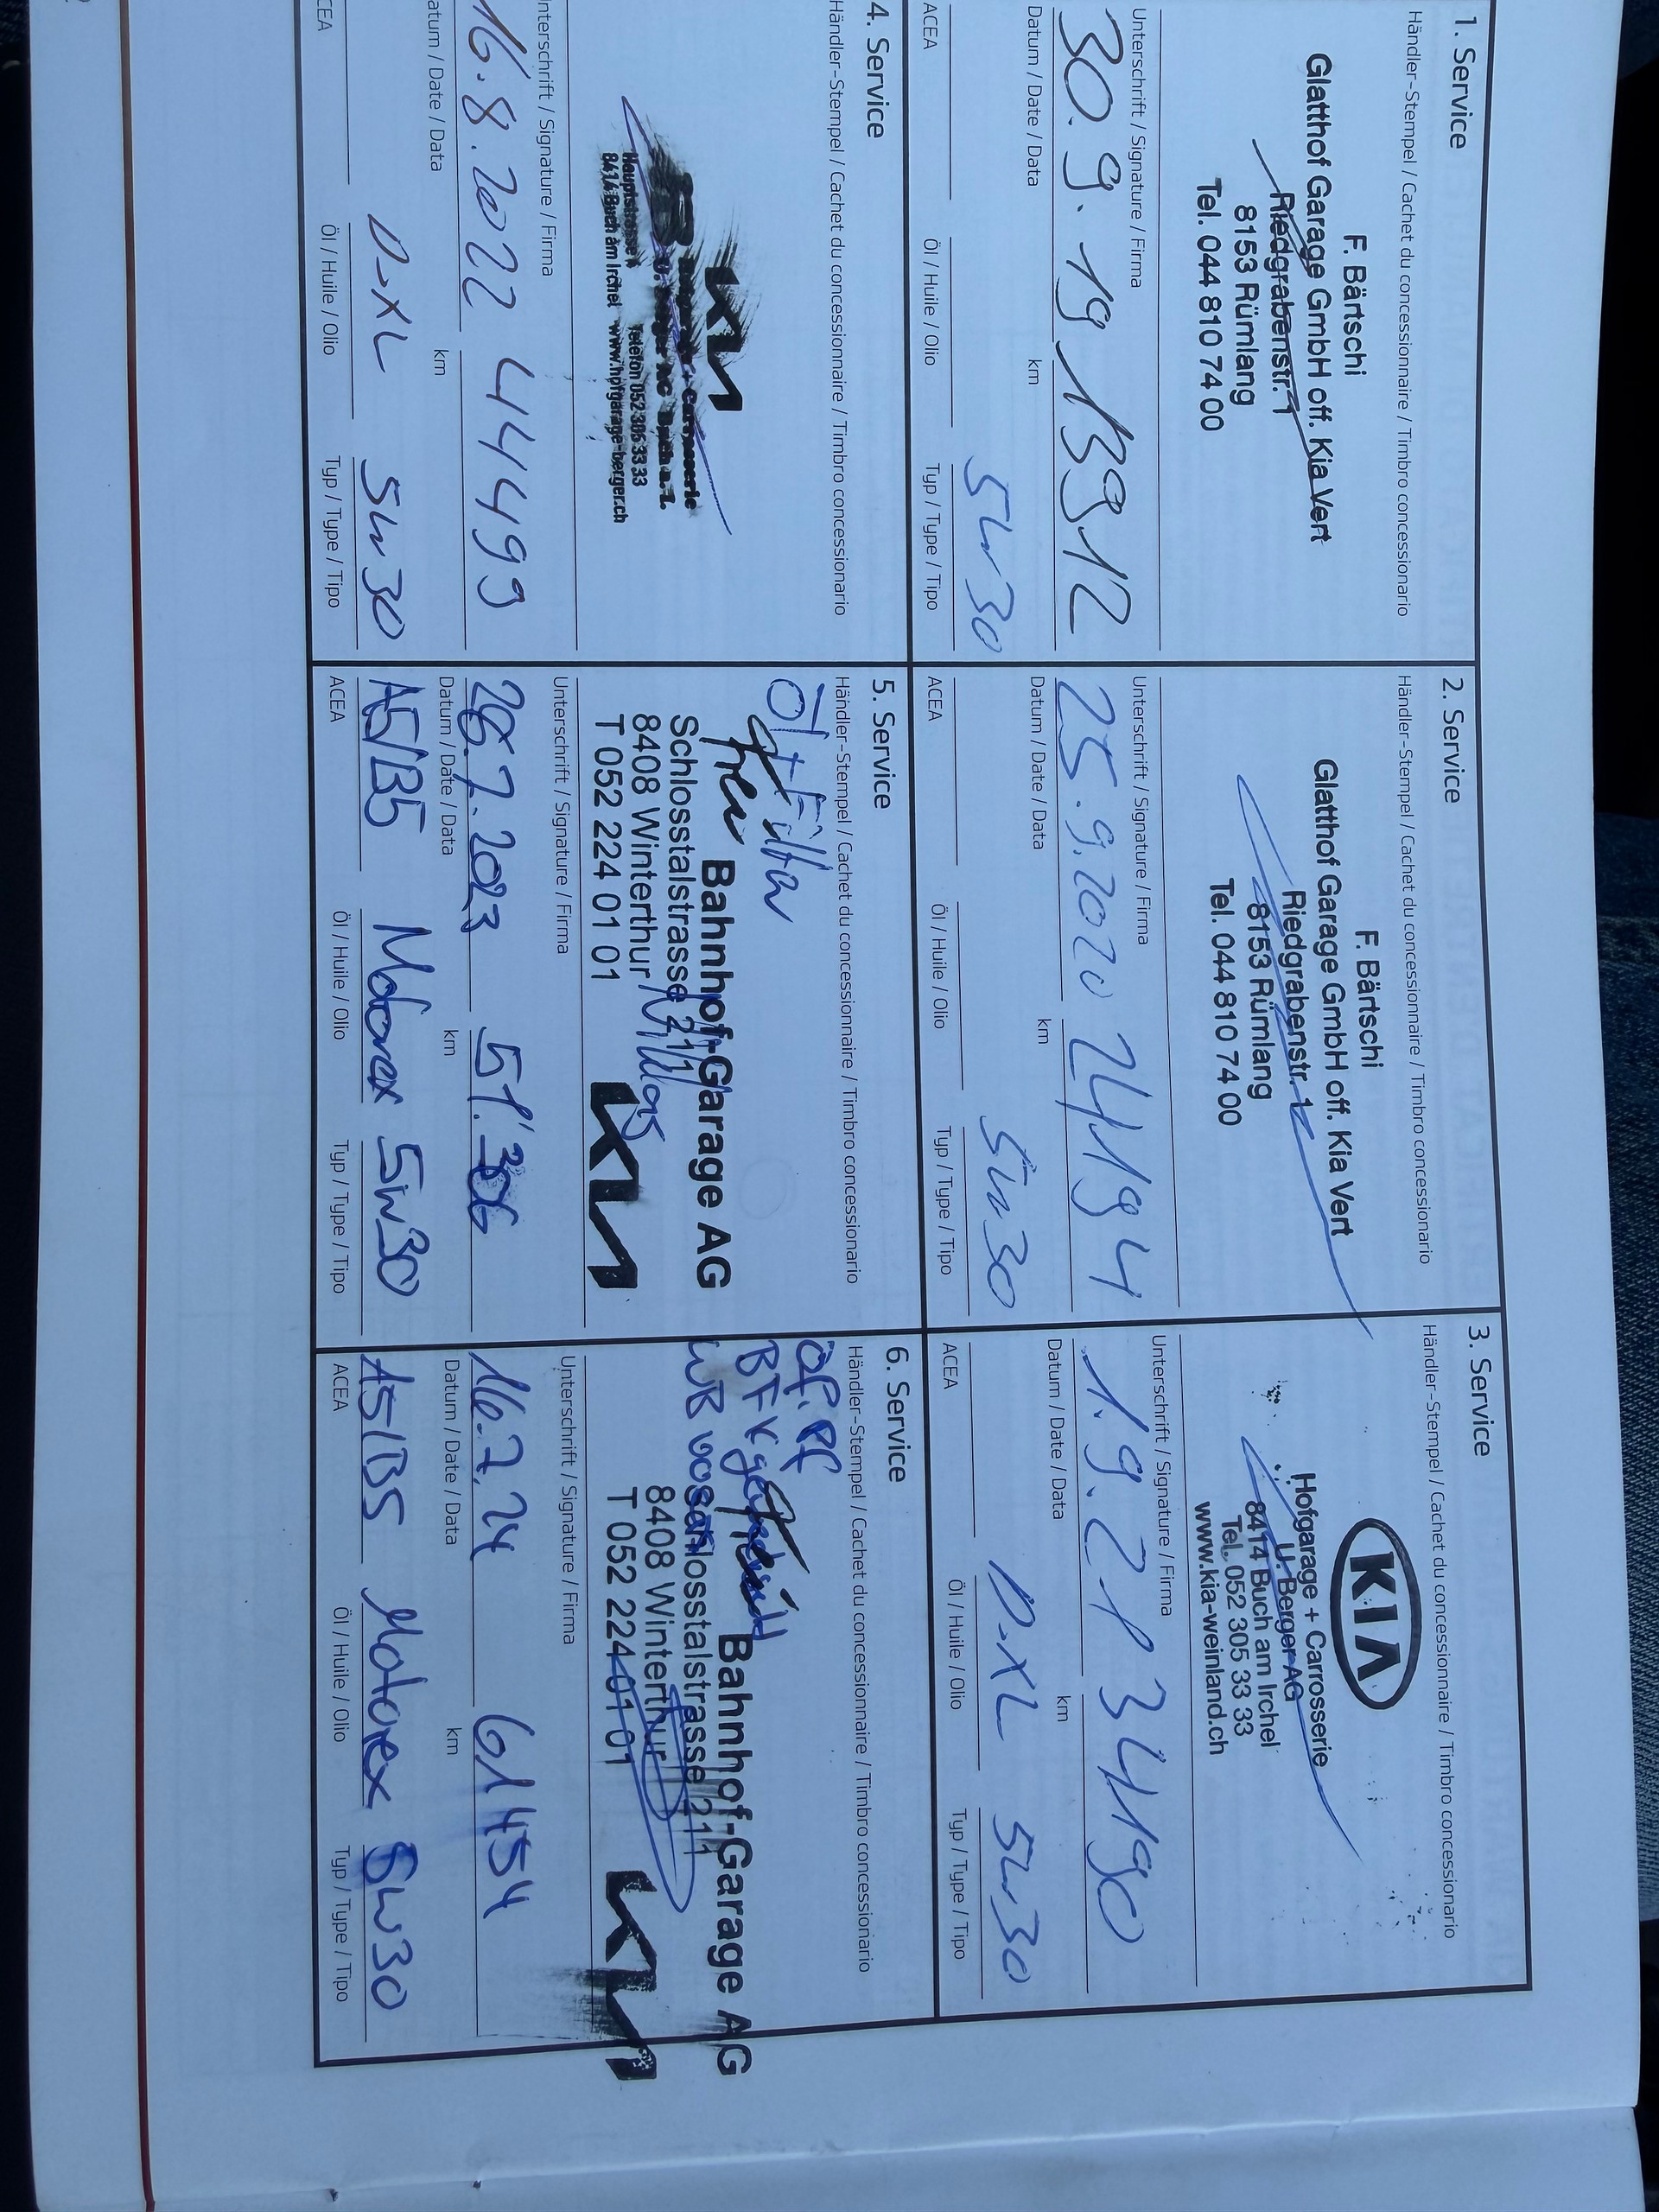 1. Service
Händler-Stempel / Cachet du concessionnaire / Timbro concessionario
F. Bärtschi
Glatthof Garage GmbH off. Kia Vert
Riedgrabenstr. 1
8153 Rümlang
Tel. 044 810 74 00
Unterschrift / Signature / Firma
30.9.19 13912
Datum / Date / Data km
5W30
ACEA Öl / Huile / Olio Typ / Type / Tipo
2. Service
Händler-Stempel / Cachet du concessionnaire / Timbro concessionario
F. Bärtschi
Glatthof Garage GmbH off. Kia Vert
Riedgrabenstr. 1
8153 Rümlang
Tel. 044 810 74 00
Unterschrift / Signature / Firma
25.9.2020 24194
Datum / Date / Data km
5W30
ACEA Öl / Huile / Olio Typ / Type / Tipo
3. Service
Händler-Stempel / Cachet du concessionnaire / Timbro concessionario
KIA
Hofgarage + Carrosserie
U. Berger AG
8414 Buch am Irchel
Tel. 052 305 33 33
www.kia-weinland.ch
Unterschrift / Signature / Firma
1.9.21 34190
Datum / Date / Data km
D-XL 5W30
ACEA Öl / Huile / Olio Typ / Type / Tipo
4. Service
Händler-Stempel / Cachet du concessionnaire / Timbro concessionario
KIA
Hauptstrasse Telefon 052 305 33 33
8414 Buch am Irchel www.hofgarage-berger.ch
nterschrift / Signature / Firma
16.8.2022 44499
atum / Date / Data km
D-XL 5W30
CEA Öl / Huile / Olio Typ / Type / Tipo
5. Service
Händler-Stempel / Cachet du concessionnaire / Timbro concessionario
Öl + Filter
Bahnhof-Garage AG
Schlosstalstrasse 211
8408 Winterthur
T 052 224 01 01
KIA
Unterschrift / Signature / Firma
26.7.2023 51'306
Datum / Date / Data km
A5/B5 Motorex 5W30
ACEA Öl / Huile / Olio Typ / Type / Tipo
6. Service
Händler-Stempel / Cachet du concessionnaire / Timbro concessionario
BFK
Bahnhof-Garage AG
Schlosstalstrasse 211
8408 Winterthur
T 052 224 01 01
KIA
Unterschrift / Signature / Firma
16.7.24 61454
Datum / Date / Data km
A5/B5 Motorex 5W30
ACEA Öl / Huile / Olio Typ / Type / Tipo